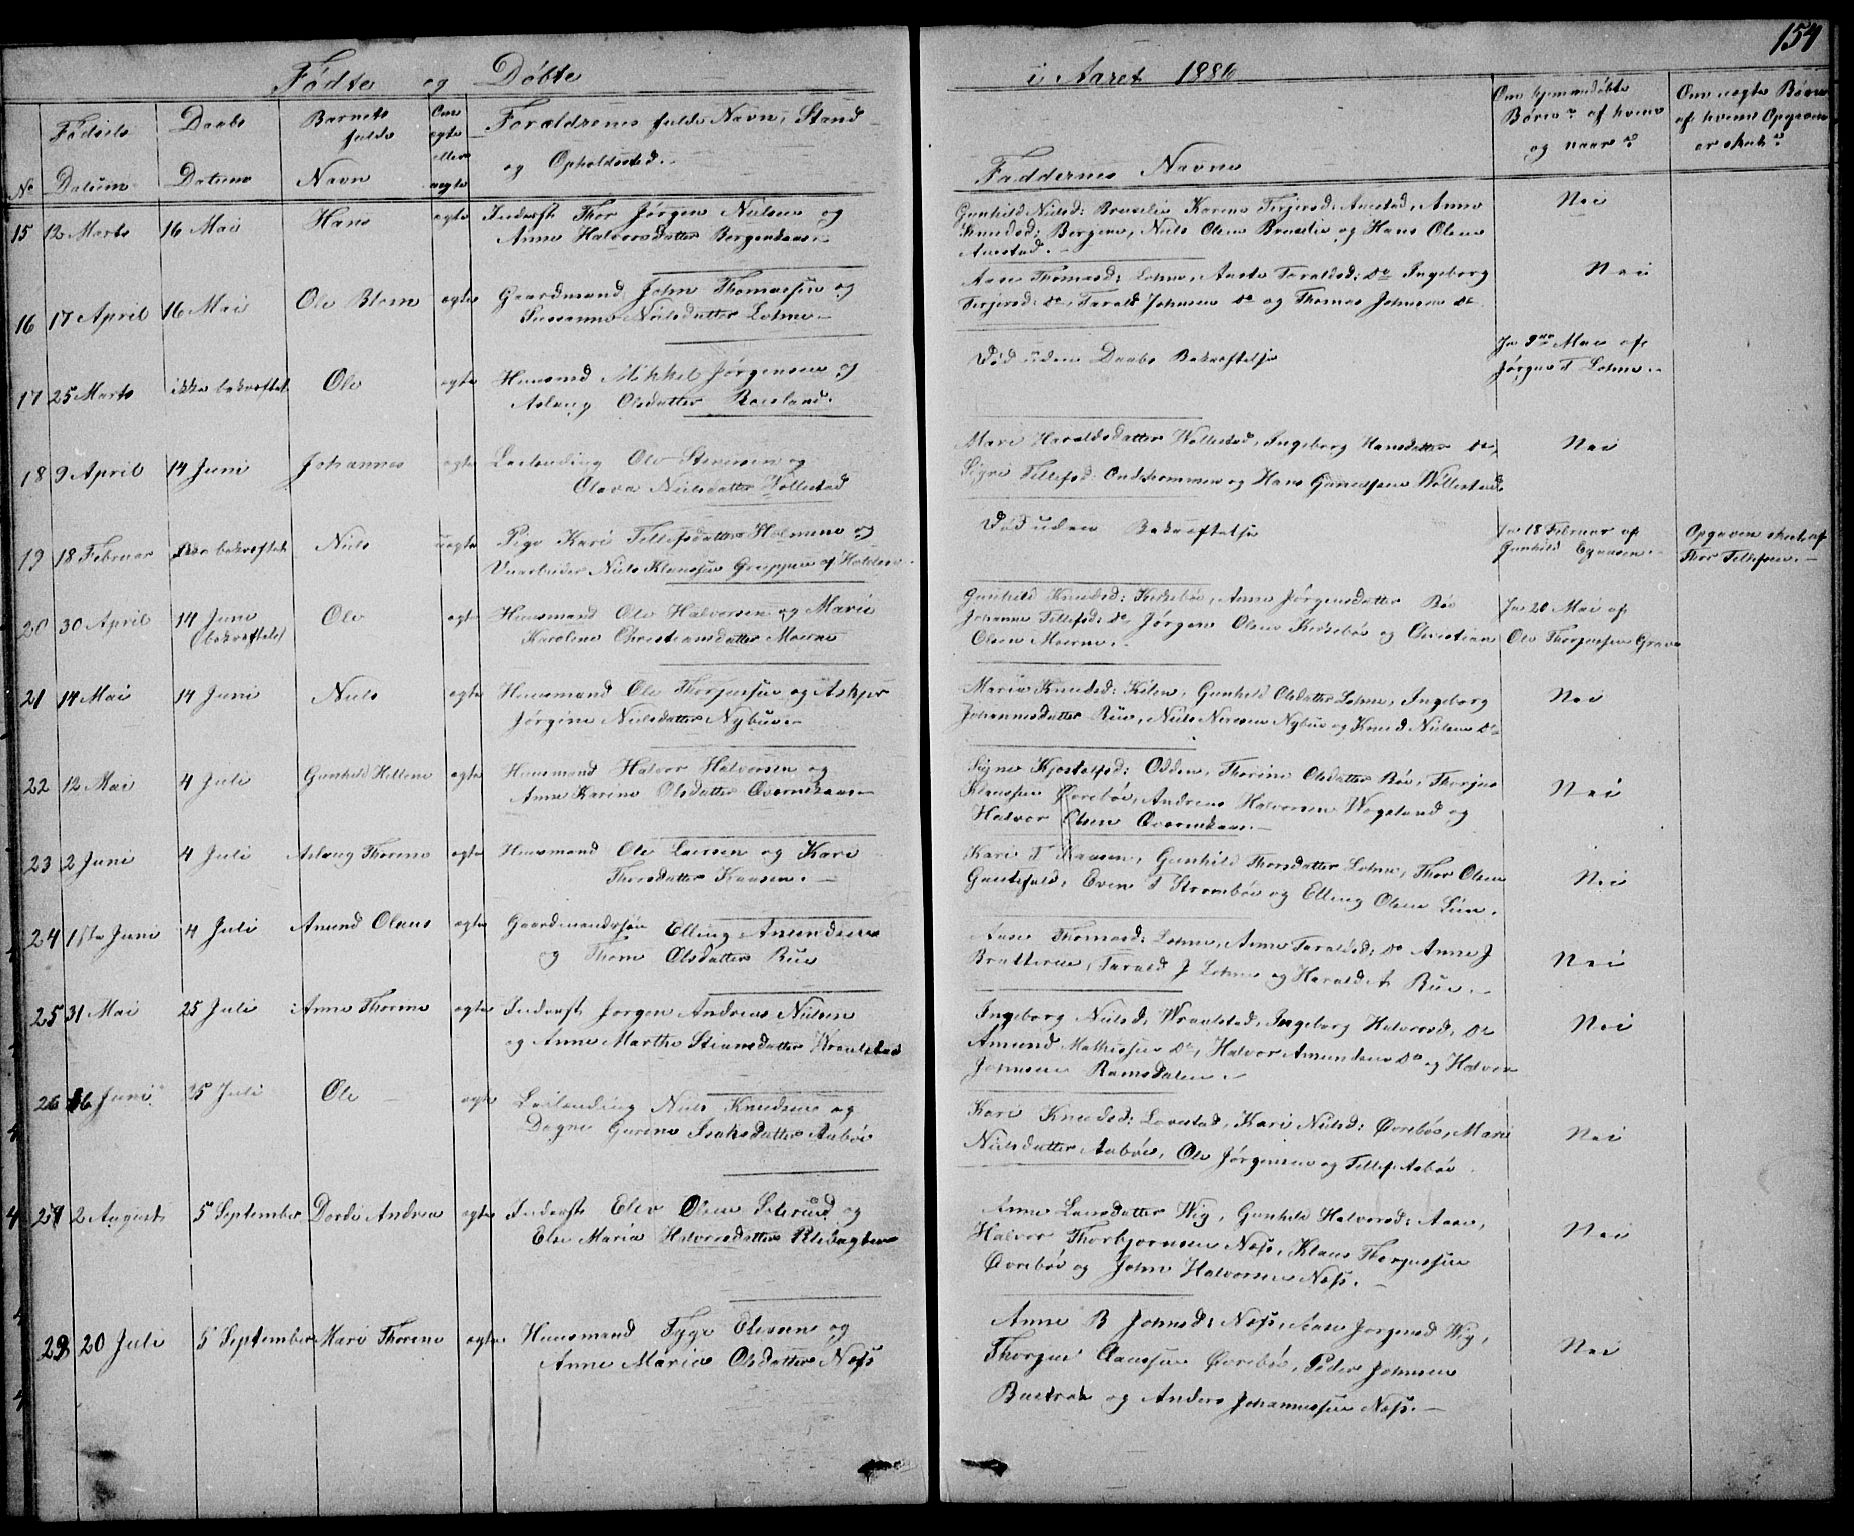 154
Fødte og Døbte i Aaret 1886
No
Fødsels Datum
Daabs Datum
Barnets fulde Navn
Om ægte eller uægte
Forældrenes fulde Navn, Stand og Opholdssted.
Faddernes Navne
Om hjemmedøbte Børn af hvem og naar?
Om uægte Børn af hvem Opgaven er skeet?
15 12 Marts 16 Mai Hans ægte Inderst Thor Jørgen Nielsen og
Anne Halvorsdatter
Gunhild Nielsd: Karen Terjersd: Anne
Knudsd: Bergene, Niels Olsen og Hans Olsen
Nei
16 17 April 16 Mai Ole Blom ægte Gaardmand John Thomassen og
Susanne Nielsdatter Lohne.
Aase Thomasd: Lohne, Aaste Taraldsd: Do Ingeborg
Terjersd: Do, Tarald Johnsen Do og Thomas Johnsen Do
Nei
17 25 Marts ikke bekræftet Ole ægte Huusmd Mikkel Jørgensen og
Aslaug Olsdatter Roesland.
Død uden Daabs Bekræftelse
Ja 9de Mai af
Jørgen T Lohne.
18 9 April 14 Juni Johannes ægte Leilending Ole Stensen og
Olava Nielsdatter Wollestad
Mari Haraldsdatter Wollestad, Ingeborg Hansdatter Do,
Sigri Tellefsd: og Hans Gundersen Wollestad
Nei
19 18 Februar ikke bekræftet Niels uægte Pige Kari Tellefsdatter Holmene og
Niels Klaussen Gruppen af Holden.
Død uden Bekræftelse
Ja 18 Februar af
Gunhild
Opgaven skeet af
Thor Tellefsen.
20 30 April 14 Juni (bekræftet) Ole ægte Huusmand Ole Halvorsen og Marie
Karoline Christiansdatter Moerne
Gunhild Knudsd: Kirkebøe, Anne Jørgensdatter Bøe
Johanne Tellefsd: Do, Jørgen Olsen Kirkebøe og Christian
Olsen Moerne.
Ja 20 Mai af
Ole Thorjussen Grave
21 14 Mai 14 Juni Niels ægte Huusmand Ole Thorjussen og Askjer
Jørgine Nielsdatter Nybue.
Maria Knudsd: Kilen, Gunhild Olsdatter Lohne, Ingeborg
Johannesdatter Rue, Niels Nybue og Knud Nielsen Do
Nei
22 12 Mai 4 Juli Gunhild Hellene ægte Huusmand Halvor Halvorsen og
Anne Karine Olsdatter Qvernekaas.
Signe Kjostolfsd: Odden, Thorine Olsdatter Bøe, Thorjus
Klaussen Øvrebøe, Andreas Halvorsen Wogsland og
Halvor Olsen Qvernekaas.
Nei
23 2 Juni 4 Juli Aslaug Thorene ægte Huusmand Ole Larsen og Kari
Thorsdatter Kaasen.
Kari T Kaasen, Gunhild Thorsdatter Lohne, Thor Olsen
Gautefald, Even T Strombøe og Elling Olsen Lien.
Nei
24 1ste Juni 4 Juli Amund Olaus ægte Gaardmandssøn Elling Amundsen
og Thone Olsdatter Rue
Aase Thomasd: Lohne, Anne Taraldsd: Do Anne J
Bratterue, Tarald J Lohne og Harald A Rue.
Nei
25 31 Mai 25 Juli Anne Thorene ægte Inderst Jørgen Andreas Nielsen
og Anne Marthe Stiansdatter Wraalstad
Ingeborg Nielsd, Wraalstad, Ingeborg Halvorsd, Do
Amund Mathiassen Do, Halvor Amundsen Do og Halvor
Johnsen Ramsdalen.
Nei
26 16 Juni 25 Juli Ole ægte Leilending Niels Knudsen og
Dagne Gurine Isaksdatter Aabøe
Kari Knudsd: Lovestad, Kari Nielsd: Øvrebøe, Mari
Nielsdatter Aabøe, Ole Jørgensen og Tellef Aabøe
Nei
27 2 August 5 September Dorde Andrea ægte Inderst Elev Olsen og
Else Maria Halvorsdatter
Anne Larsdatter Wig, Gunhild Halvorsd: Aase,
Halvor Thorbjørnsen Næss, Klaus Thorjussen
Øvrebøe og John Halvorsen Næss.
Nei
28 20 Juli 5 September Mari Thorene ægte Huusmand Tyge Olesen og
Anne Maria Olsdatter Næss
Anne B Johnsd: Næss, Aase Jørgensd Wig,
Thorjus Claussen Øvrebøe, Peder Johnsen
Buestrak og Anders Johannessen Næss.
Nei